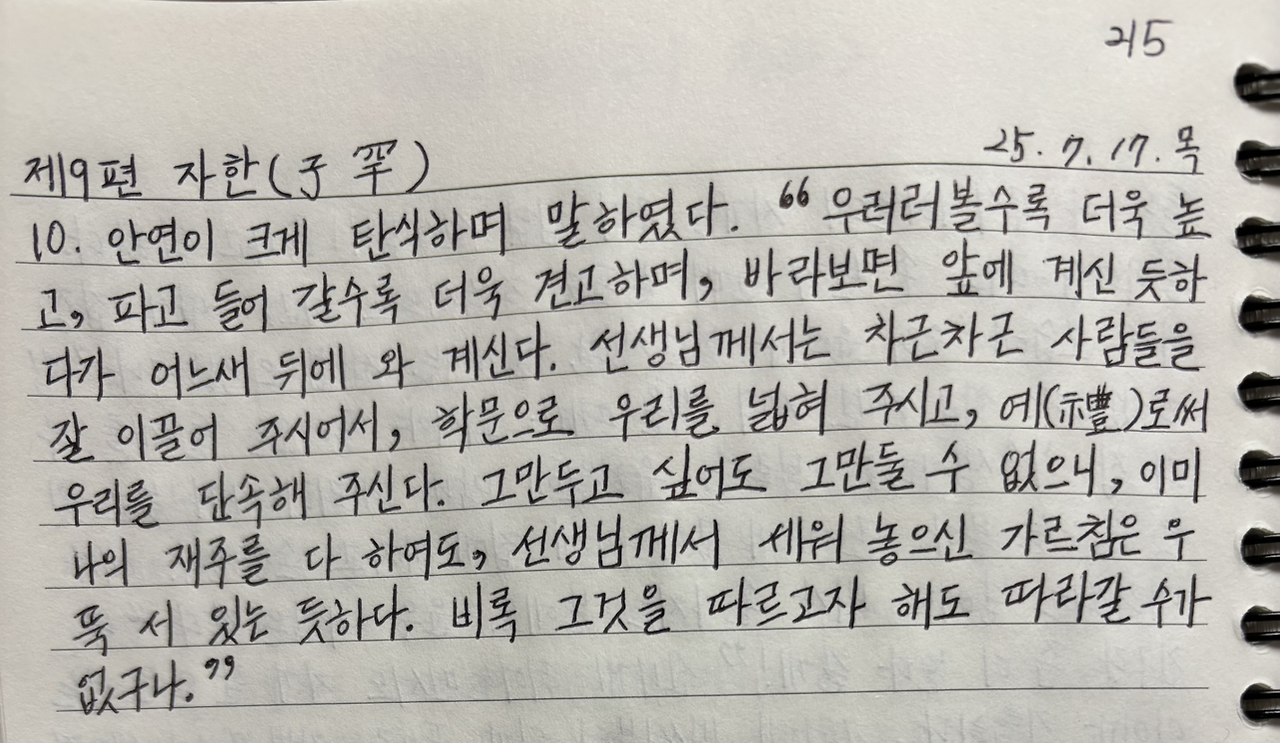 215
제9편 자한(子罕) 25. 7. 17. 목
10. 안연이 크게 탄식하며 말하였다. “우러러볼수록 더욱 높
고, 파고 들어 갈수록 더욱 견고하며, 바라보면 앞에 계신 듯하
다가 어느새 뒤에 와 계신다. 선생님께서는 차근차근 사람들을
잘 이끌어 주시어서, 학문으로 우리를 넓혀 주시고, 예(禮)로써
우리를 단속해 주신다. 그만두고 싶어도 그만둘 수 없으니, 이미
나의 재주를 다 하여도, 선생님께서 세워 놓으신 가르침은 우
뚝 서 있는 듯하다. 비록 그것을 따르고자 해도 따라갈 수가
없구나.”